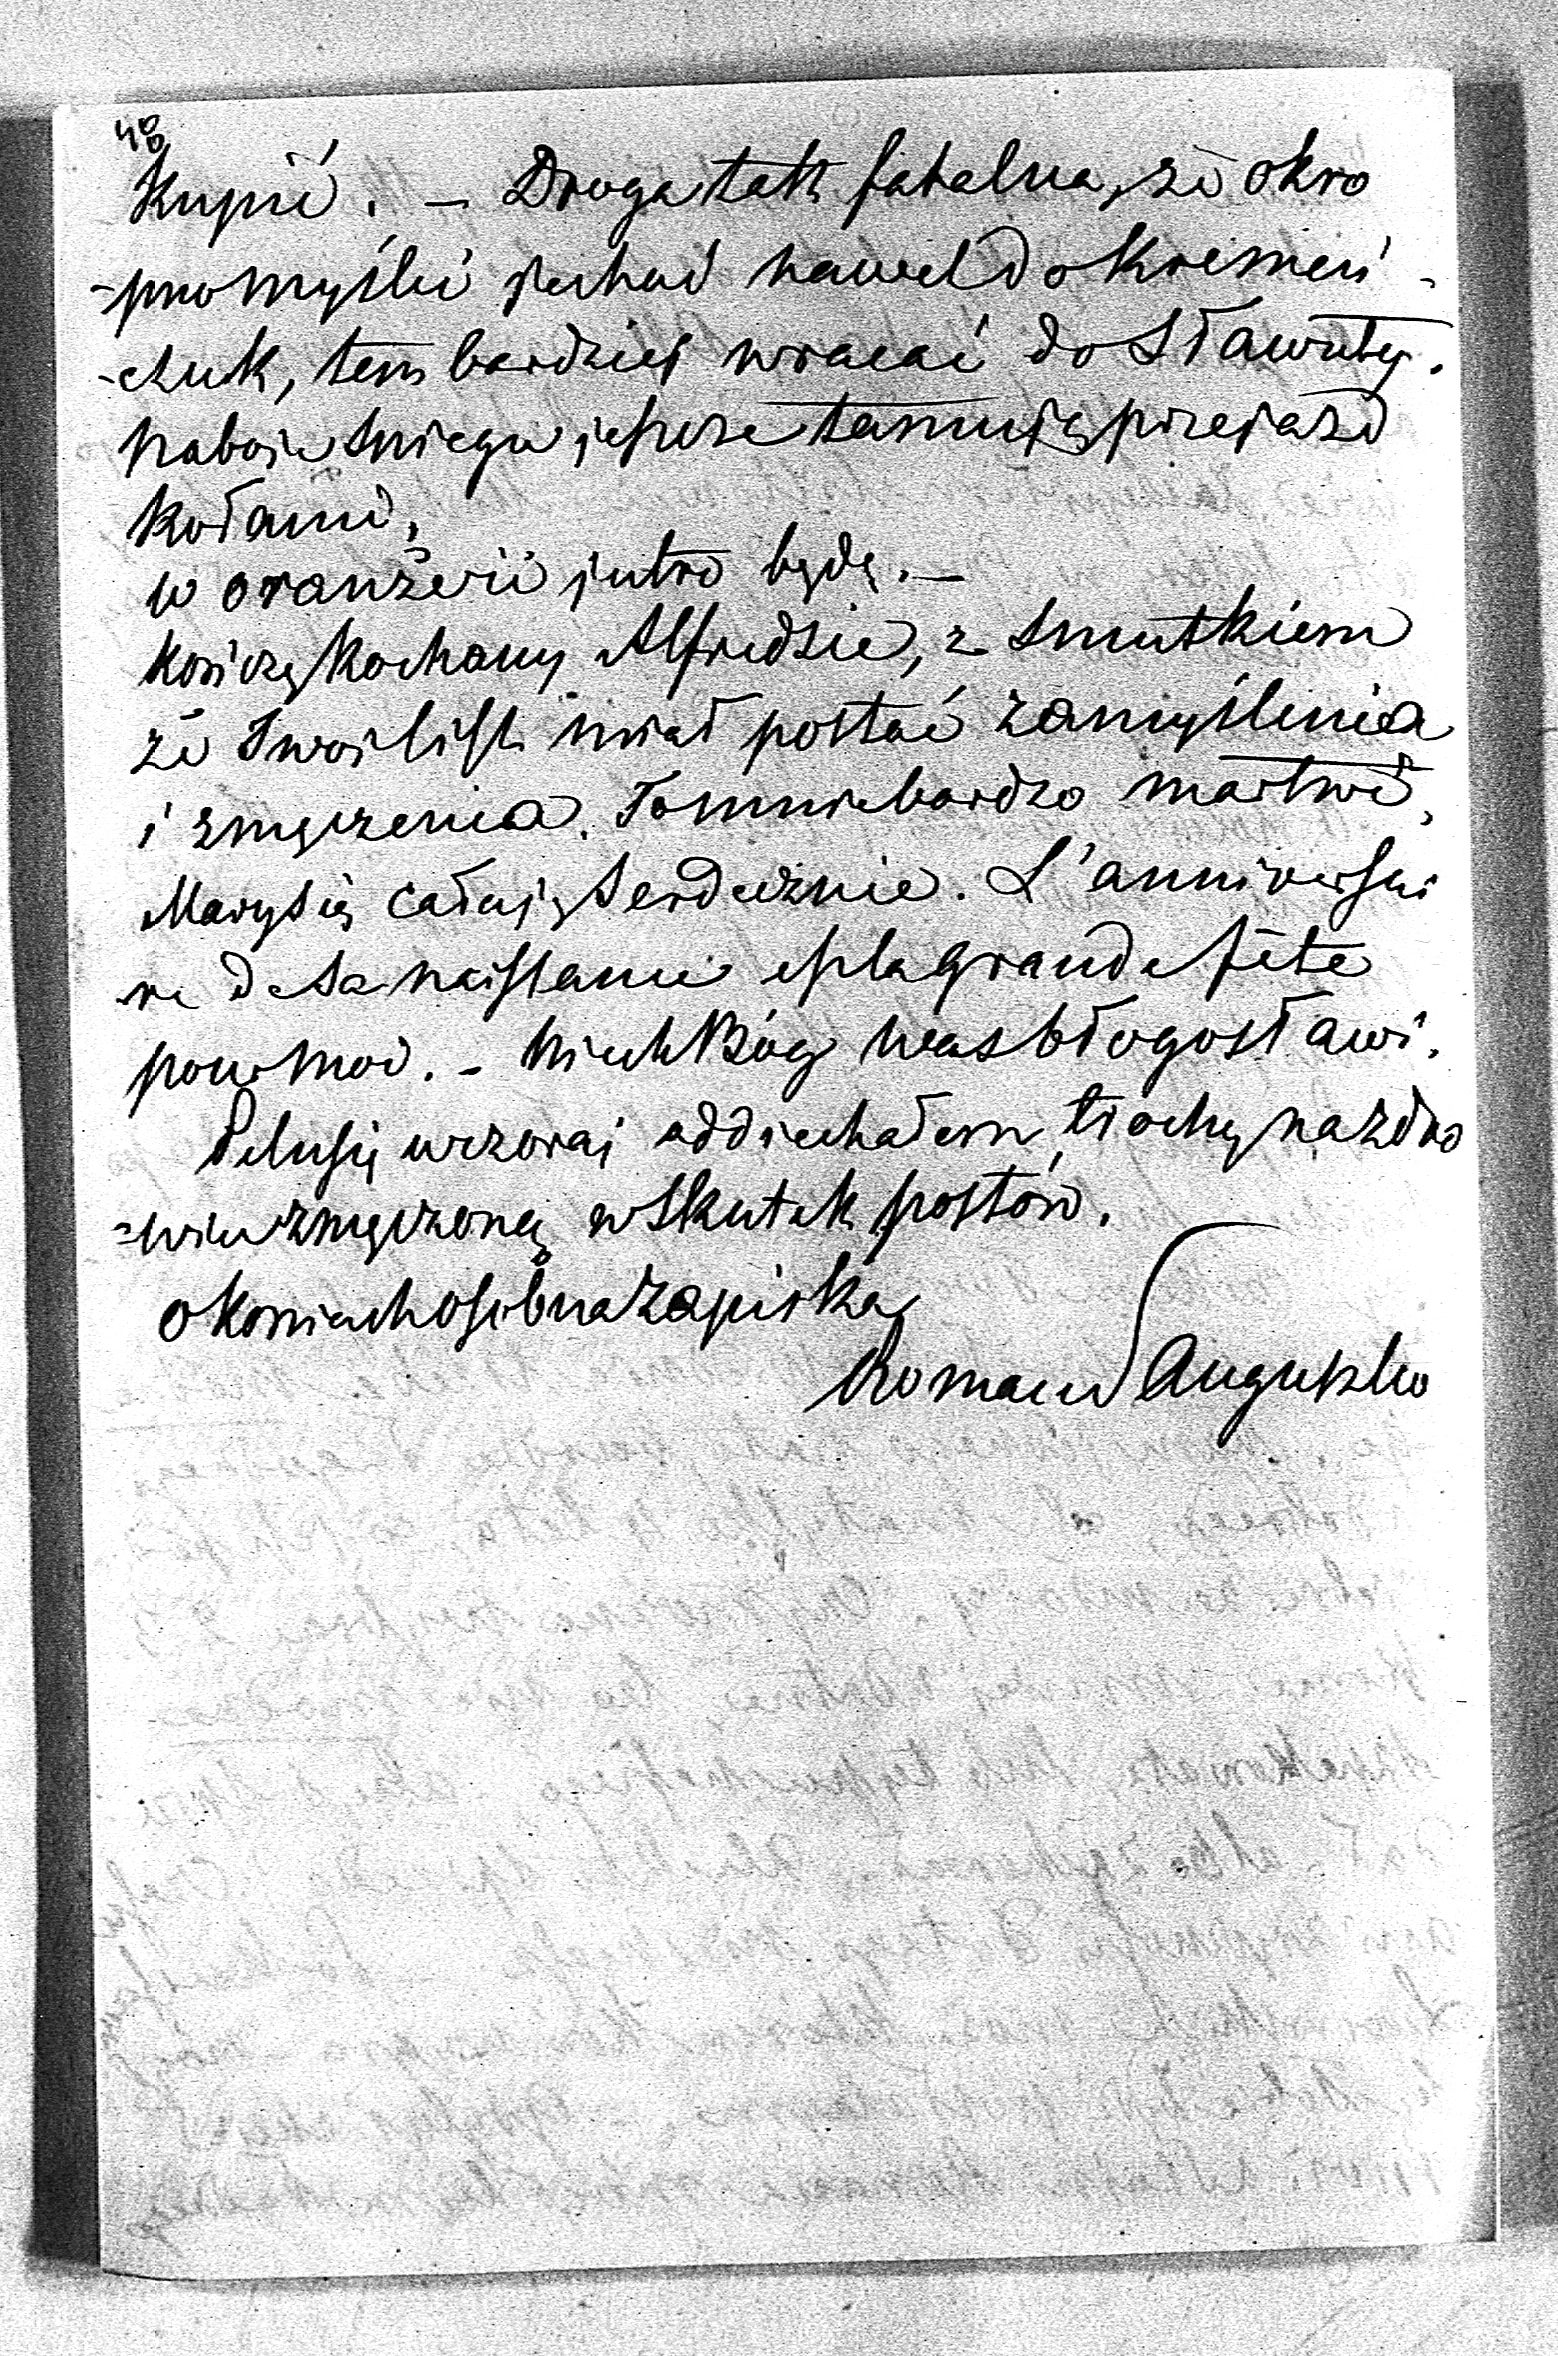 40
Kupić. – Droga tak fatalna, że okro
-pno myśleć jechać nawet do Krzemień-
-czuk, tem bardziej wracać do Sławuty.
naboje śniegu jeszcze tamują przejazd
kołami,
w oranżerii jutro będę. –
Kończę kochany Alfredzie, z smutkiem
że Twój list miał postać zamyślenia
i zmęczenia. To mnie bardzo martwi,
Marysię całuję serdecznie. L'anniversai
re de sa naissance est la grande fête
pour moi. – Niech Bóg was błogosławi.
wczoraj oddjechałem trochę na zdro
=wiu zmęczoną wskutek postów.
o koniach osobna zapiska,
Roman Sanguszko